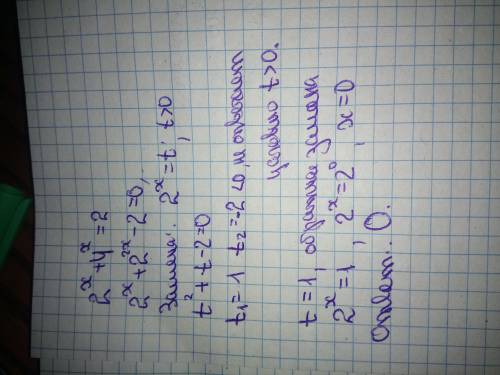 2ˣ+4ˣ=2
2ˣ+2²ˣ-2=0,
Замена: 2ˣ=t, t>0
t²+t-2=0
t₁=1 t₂=-2<0, не отвечает
условию t>0.
t=1, обратная замена
2ˣ=1, 2ˣ=2⁰, x=0
Ответ: 0.